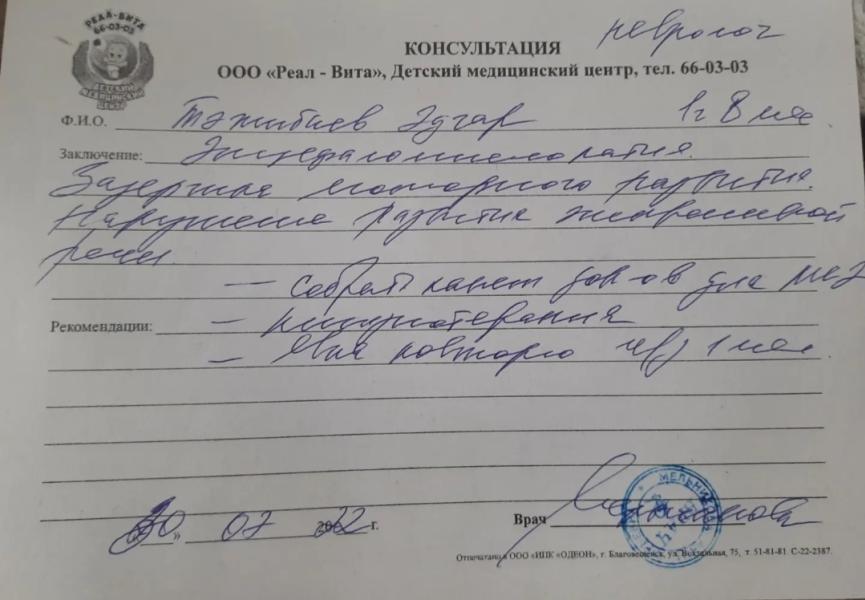 РЕАЛ-ВИТА
66-03-03
ДЕТСКИЙ
МЕДИЦИНСКИЙ
ЦЕНТР
невролог
КОНСУЛЬТАЦИЯ
ООО «Реал - Вита», Детский медицинский центр, тел. 66-03-03
Ф.И.О. Эдгар 1г 8 мес
Заключение: Энцефаломиелопатия.
Задержка моторного развития.
Нарушение развития экспрессивной
речи.
— собрать пакет док-ов для МСЭ
Рекомендации: —
— Явка повторно через 1 мес.
30 » 07 2022 г.
Врач
Отпечатано в ООО «ИПК «ОДЕОН», г. Благовещенск, ул. Вокзальная, 75, т. 51-81-81 С-22-2387.